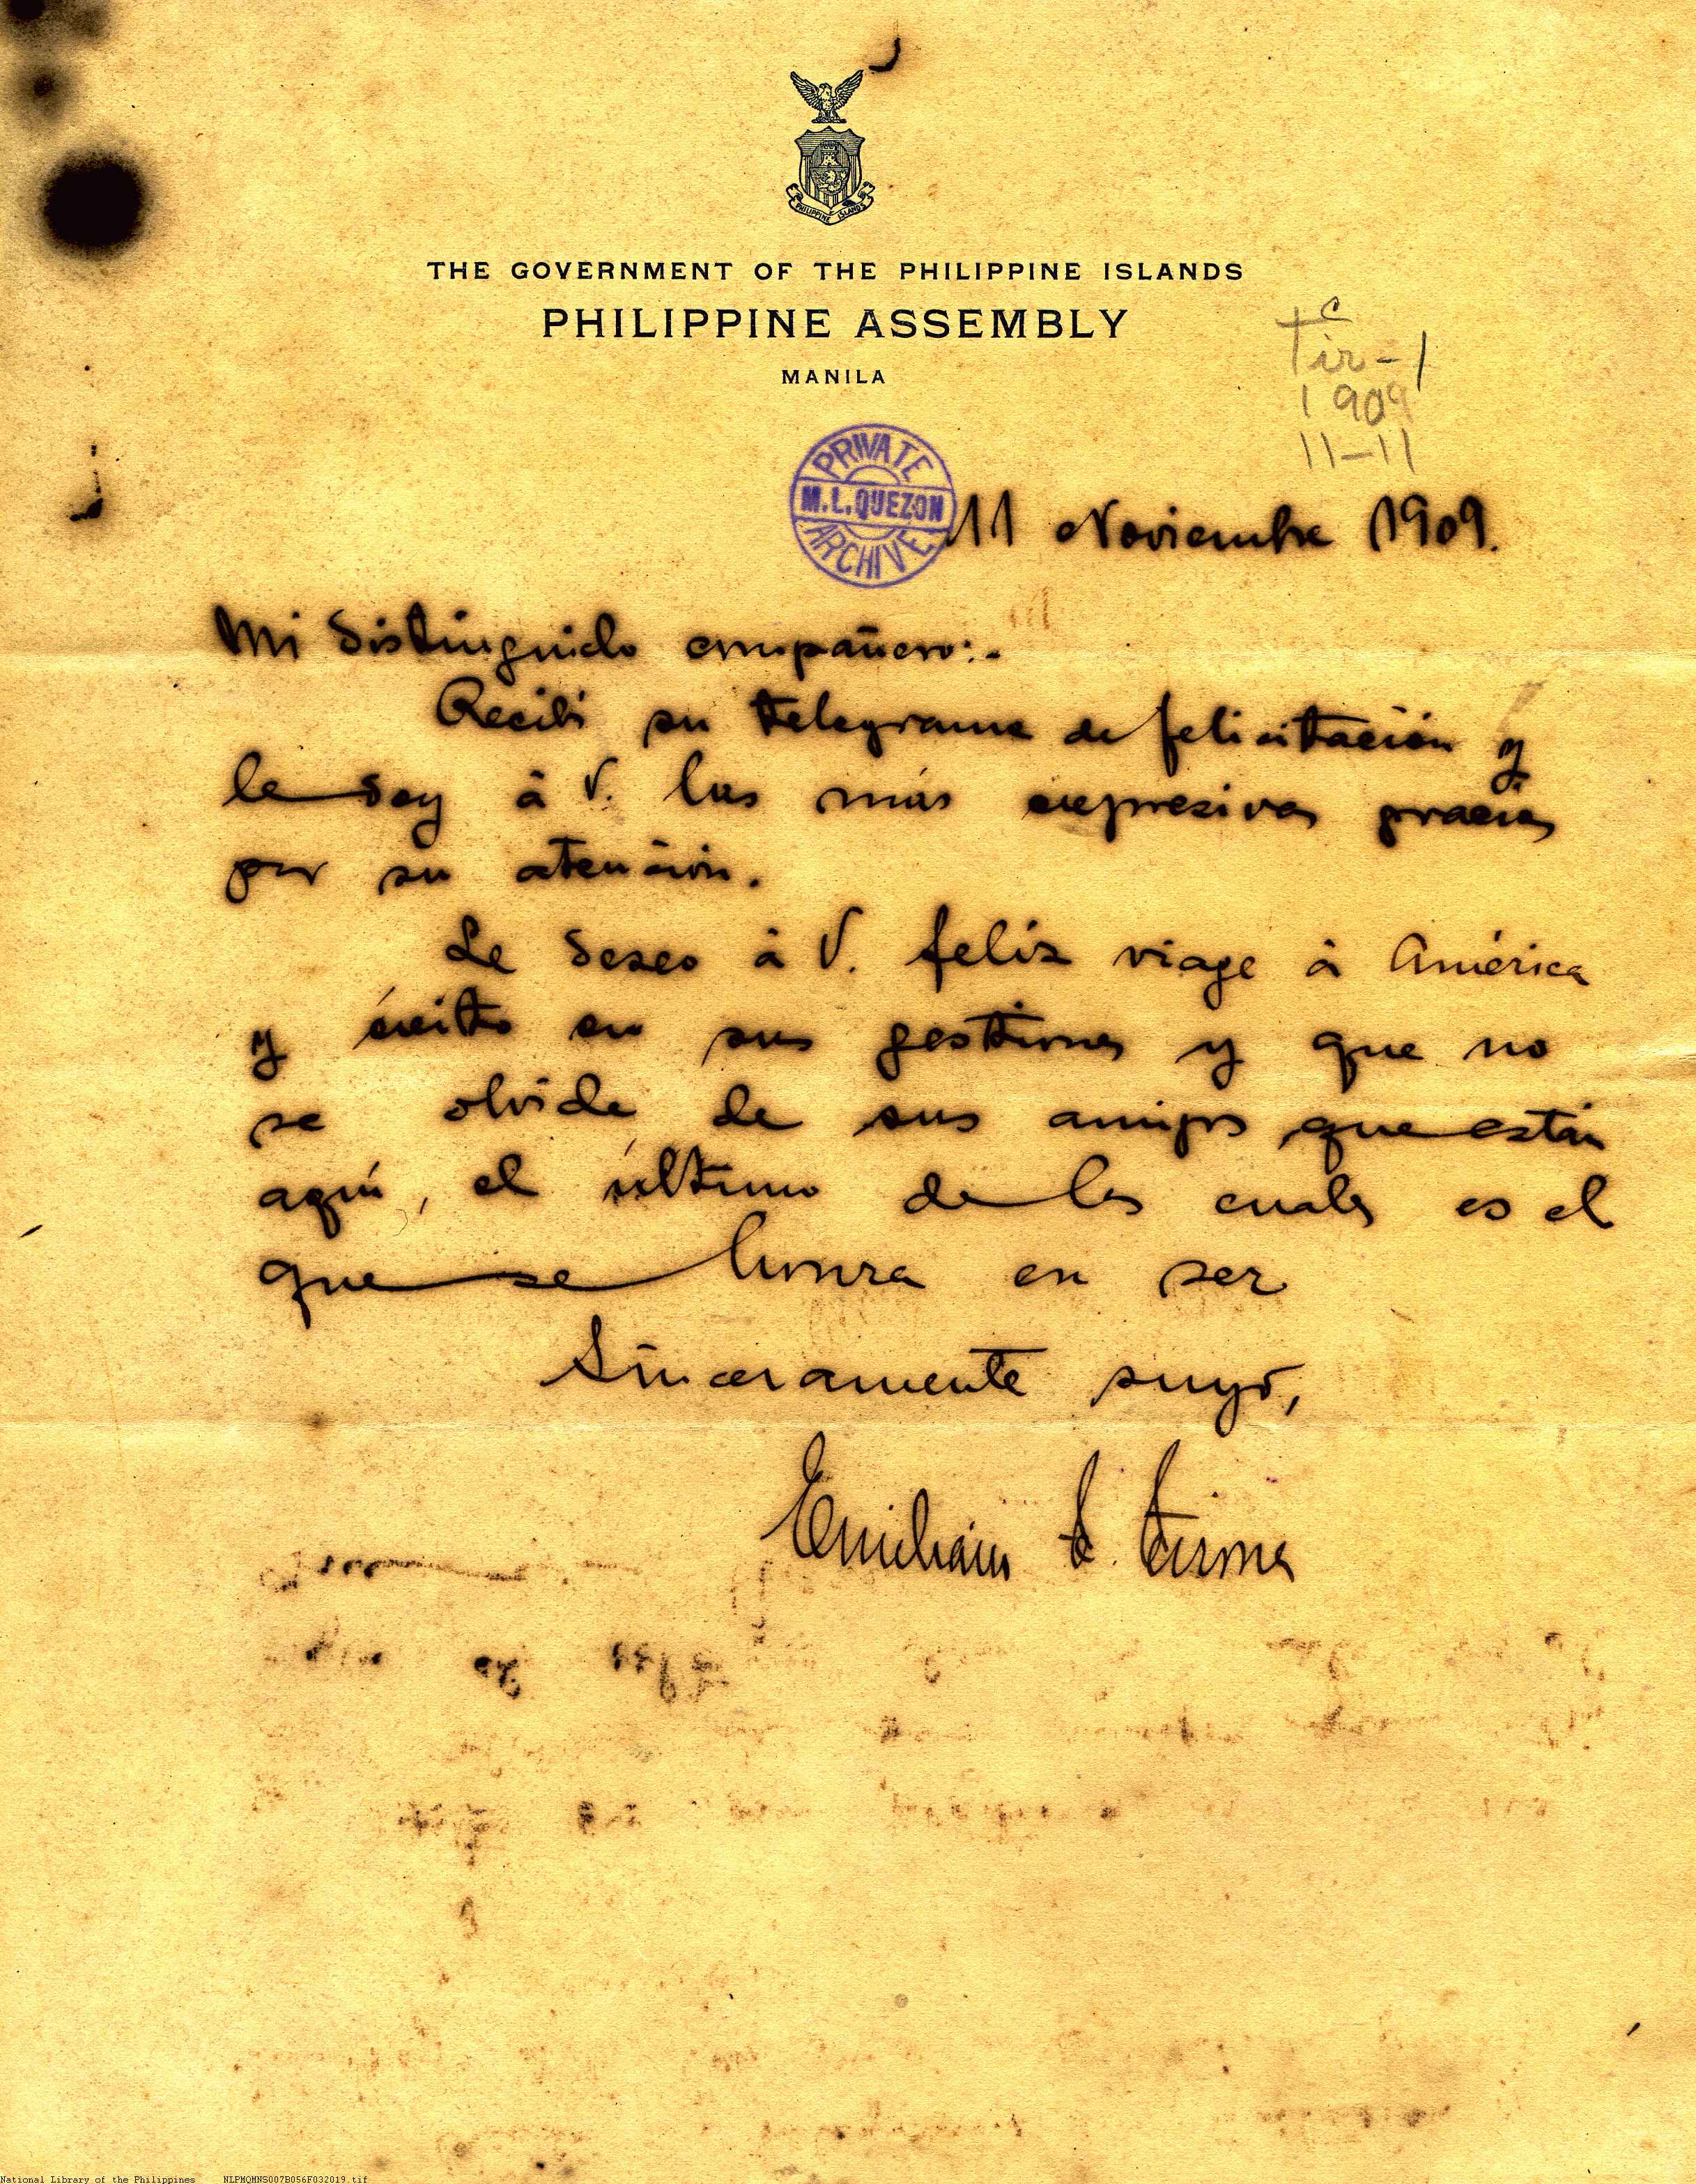 PHILIPPINE ISLANDS
THE GOVERNMENT OF THE PHILIPPINE ISLANDS
PHILIPPINE ASSEMBLY
MANILA
c
Tir-1
1909
11-11
PRIVATE
M.L.QUEZON
ARCHIVE
11 Noviembre 1909.
Mi distinguido compañero:-
Recibí su telegrama de felicitación y
le doy á V. las más expresivas gracias
por su atención.
Le deseo á V. feliz viage á América
y éxito en sus gestiones y que no
se olvide de sus amigos que están
aquí, el último de los cuales es el
que se honra en ser
Sinceramente suyo,
Emiliano T. Tirona
National Library of the Philippines NLPMQMNS007B056F032019.tif